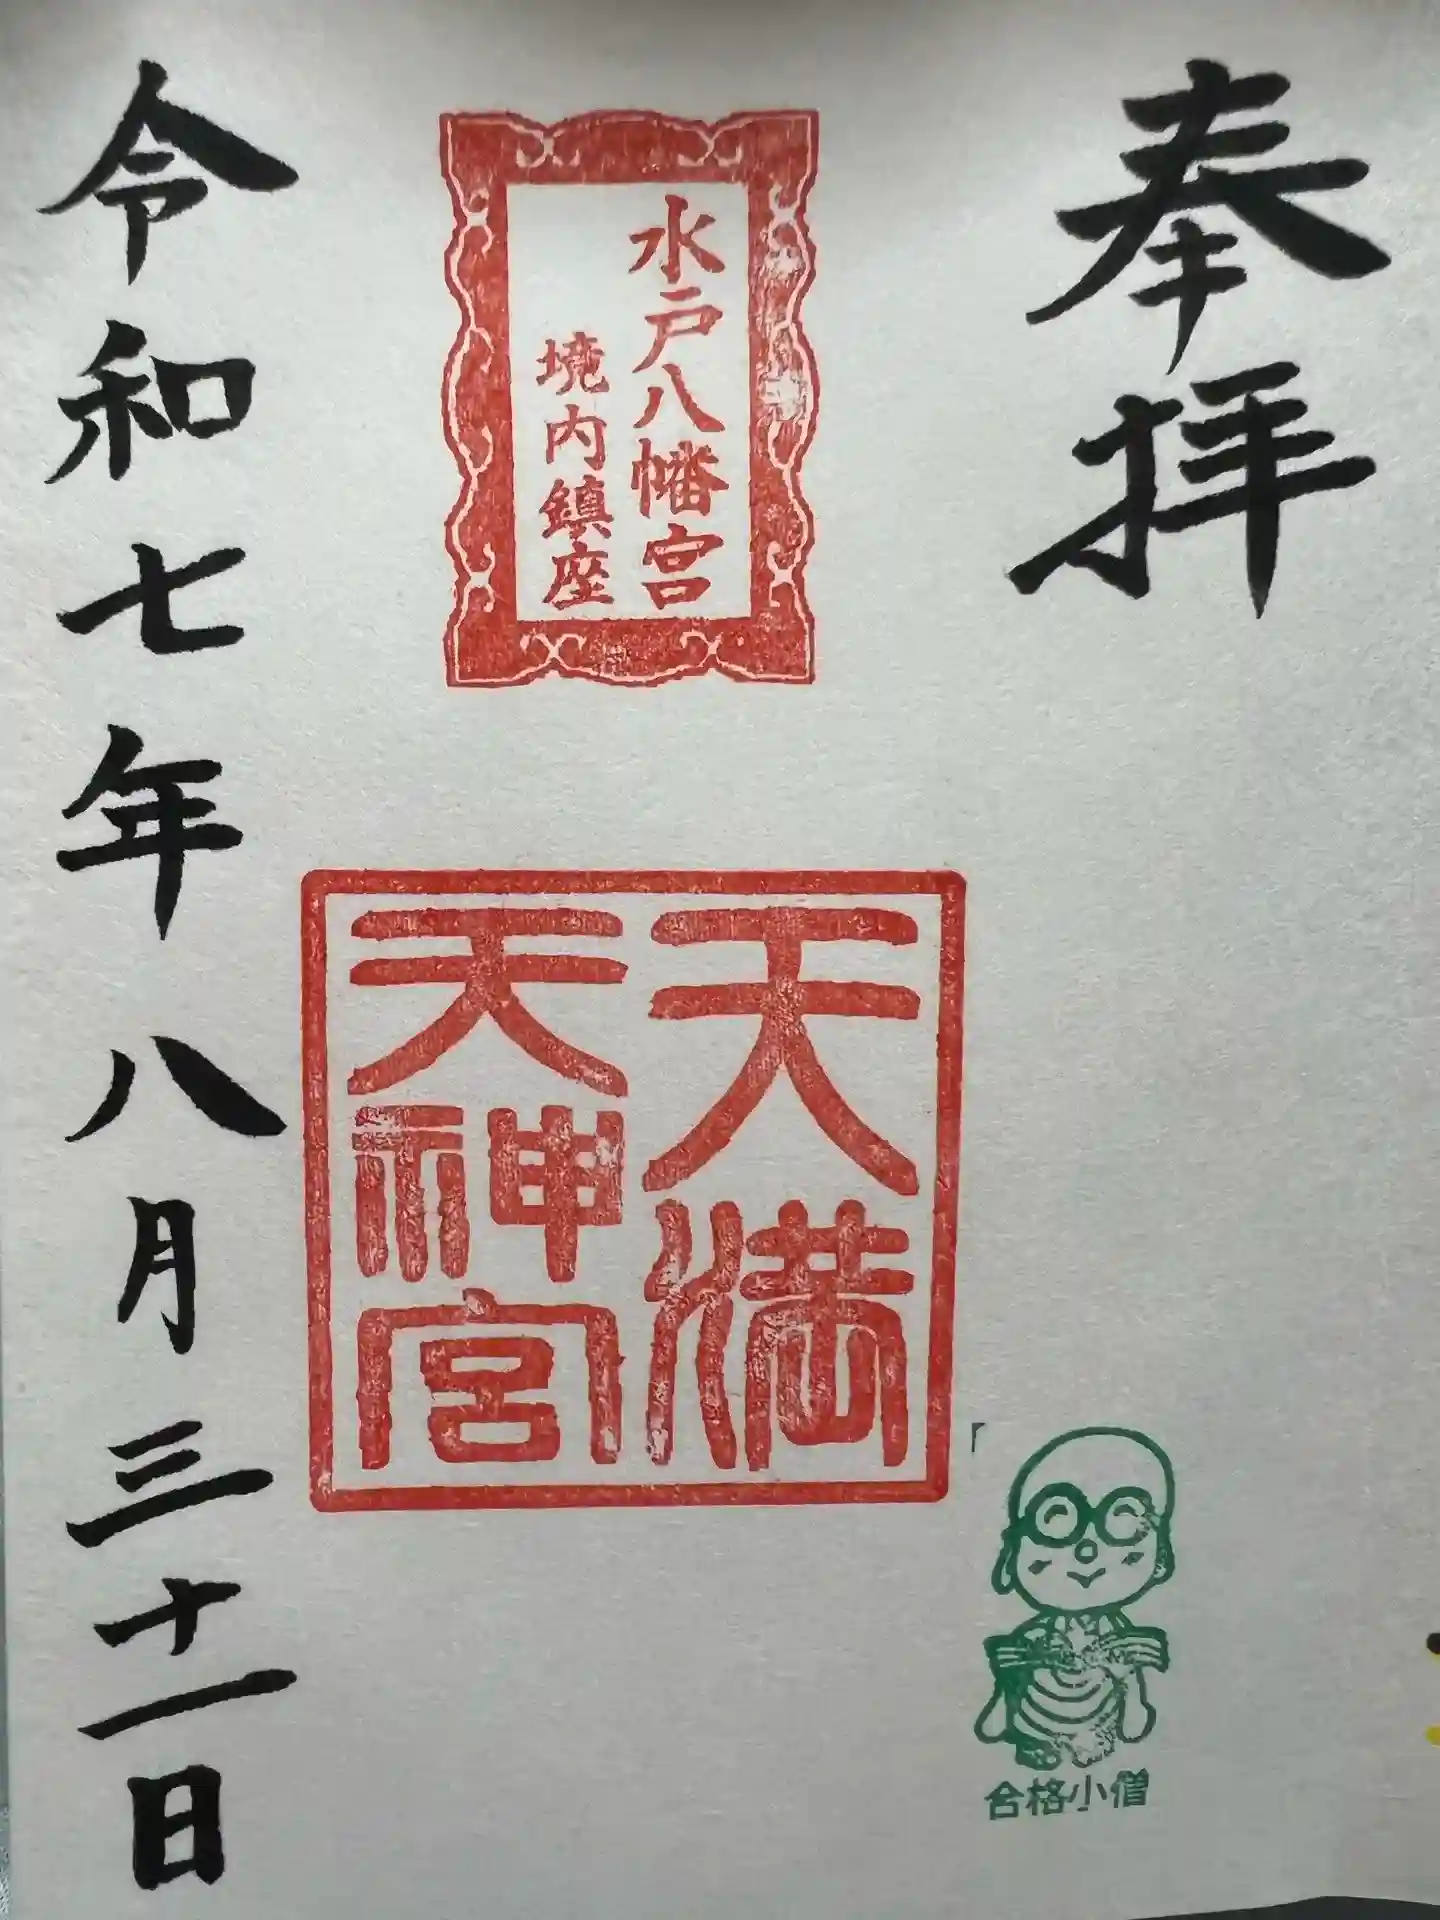 奉拝
水戸八幡宮
境内鎮座
天満
天神宮
合格小僧
令和七年八月三十一日